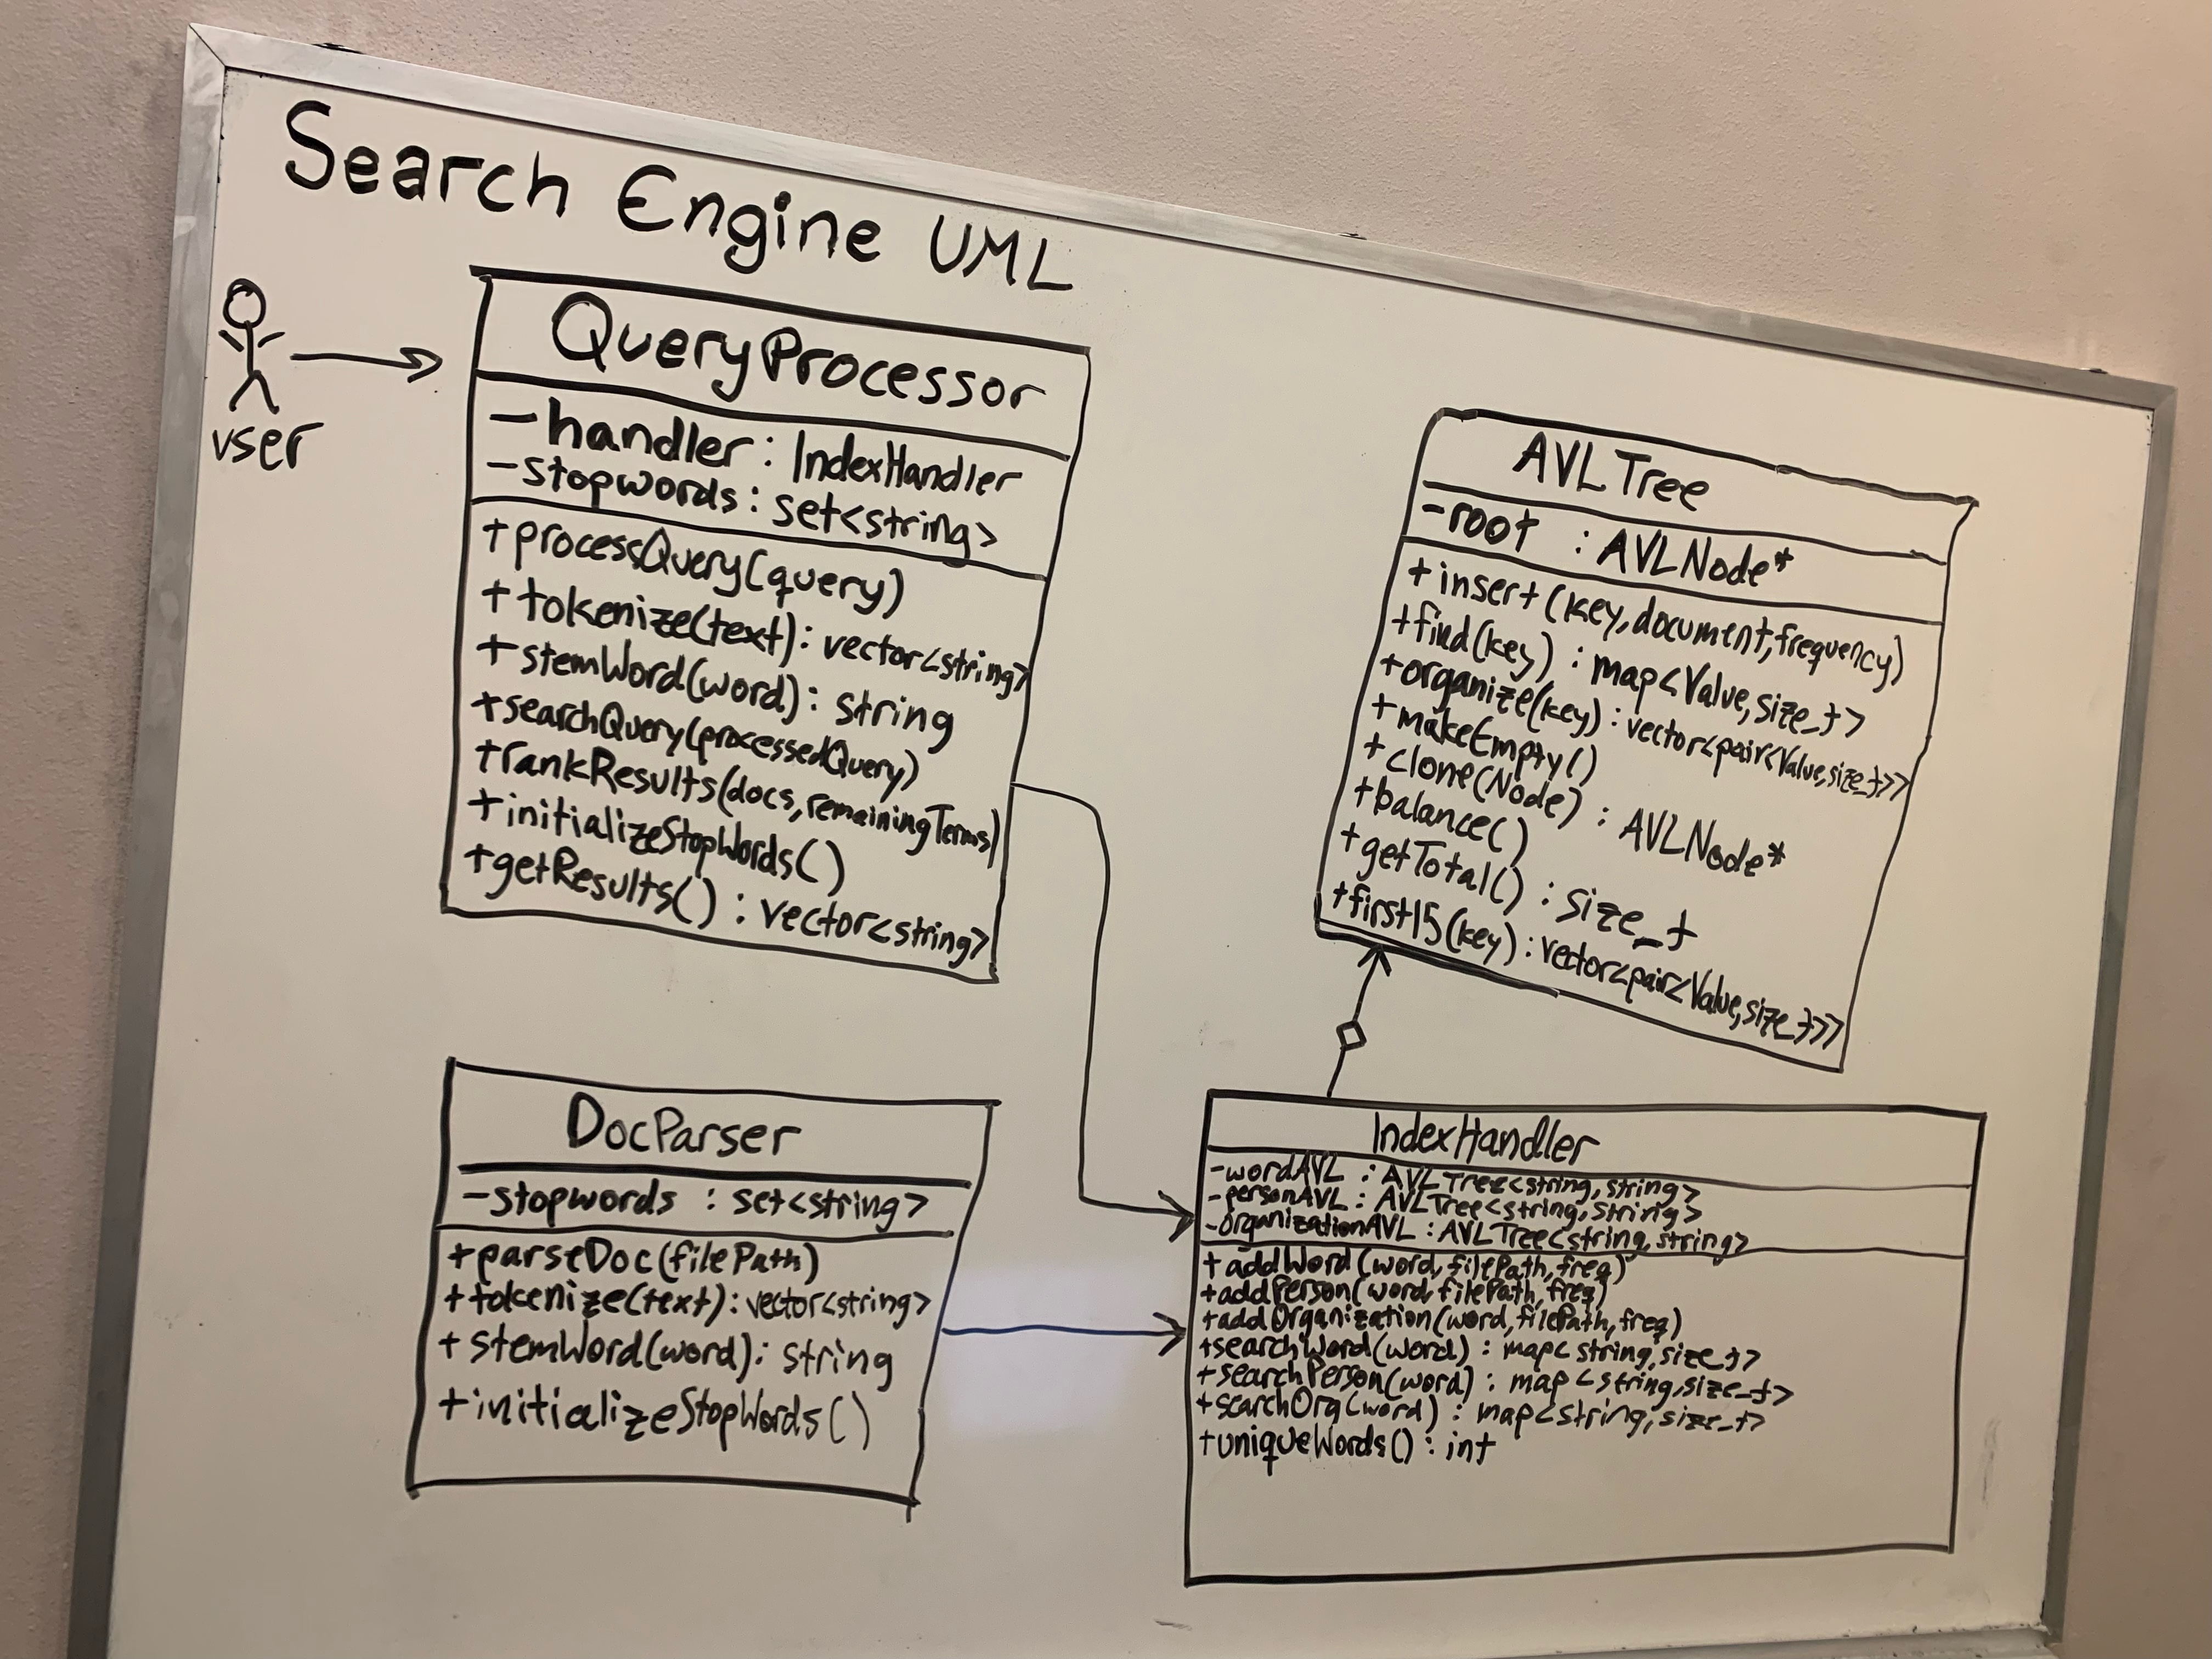 Search Engine UML
user
QueryProcessor
-handler: IndexHandler
-stopwords: set<string>
+processQuery(query)
+tokenize(text): vector<string>
+stemWord(word): string
+searchQuery(processedQuery)
+rankResults(docs,remainingTerms)
+initializeStopWords()
+getResults() : vector<string>
AVLTree
-root : AVLNode*
+insert(key,document,frequency)
+find(key) : map<Value,size_t>
+organize(key) : vector<pair<Value,size_t>>
+makeEmpty()
+clone(Node) : AVLNode*
+balance()
+getTotal() : size_t
+first15(key) : vector<pair<Value,size_t>>
DocParser
-stopwords : set<string>
+parseDoc(filePath)
+tokenize(text): vector<string>
+stemWord(word): string
+initializeStopWords()
IndexHandler
-wordAVL : AVLTree<string,string>
-personAVL : AVLTree<string,string>
-organizationAVL : AVLTree<string,string>
+addWord(word,filePath,freq)
+addPerson(word,filePath,freq)
+addOrganization(word,filePath,freq)
+searchWord(word) : map<string,size_t>
+searchPerson(word) : map<string,size_t>
+searchOrg(word) : map<string,size_t>
+uniqueWords() : int